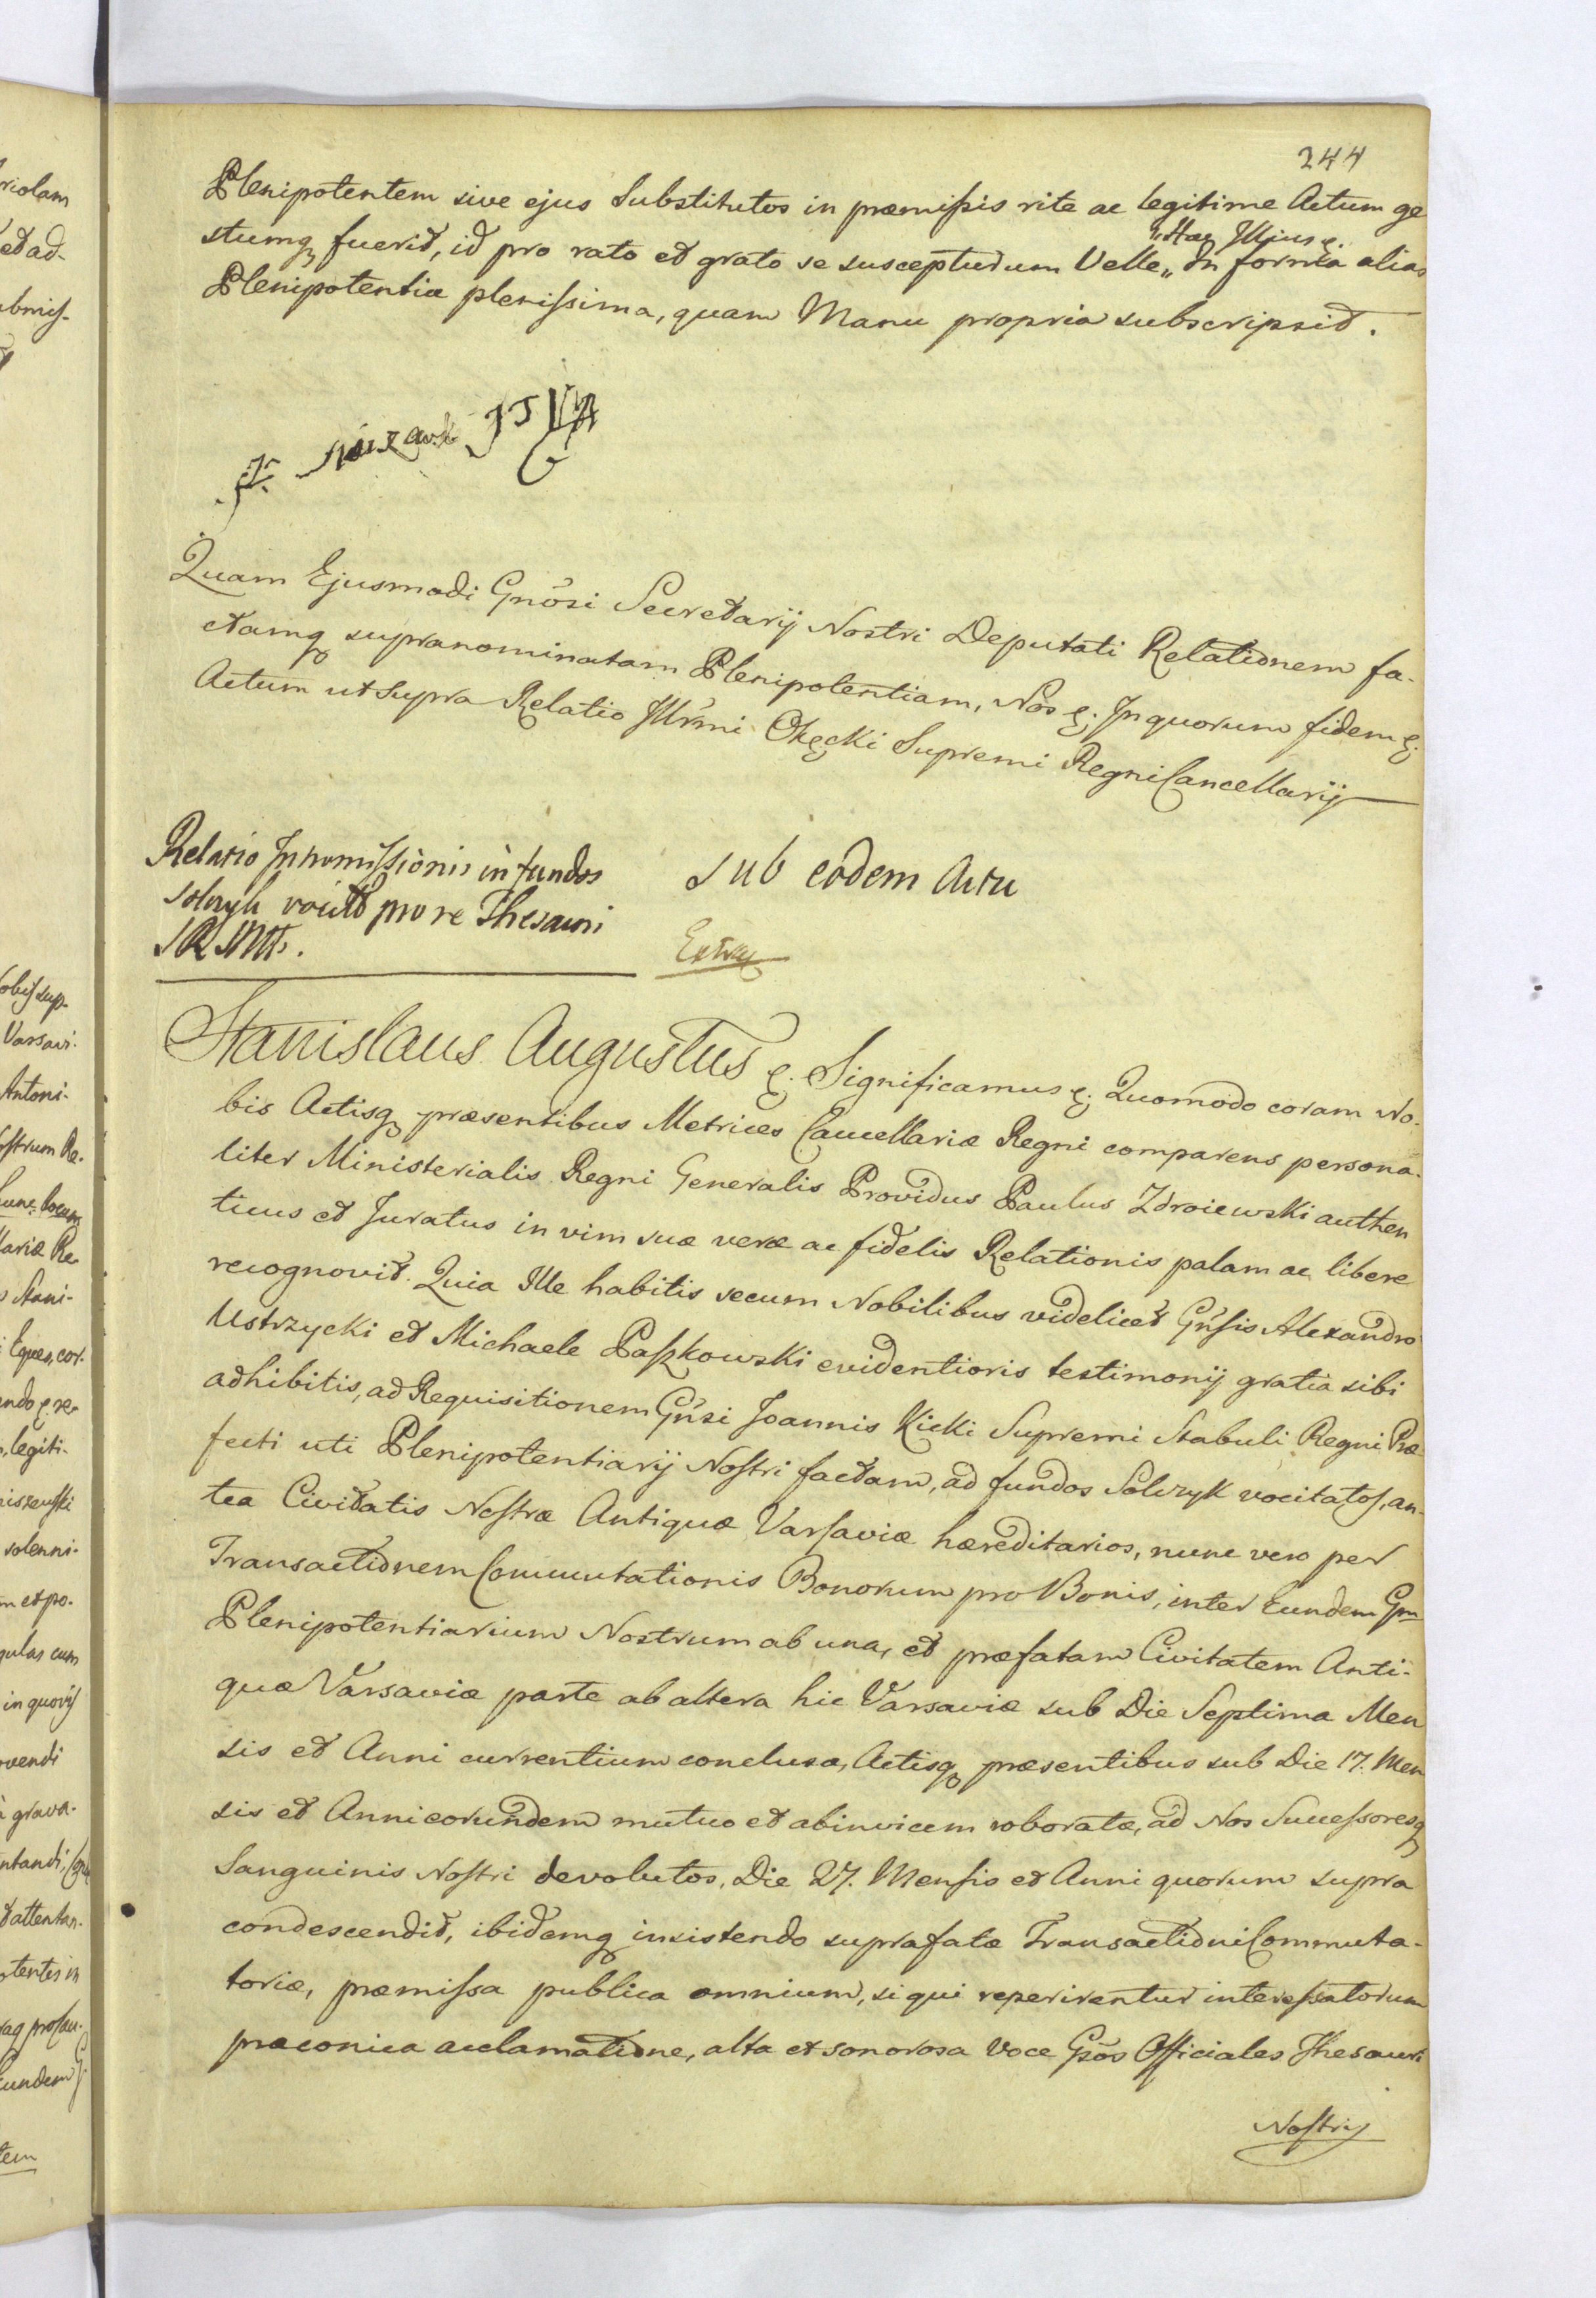 244
Plenipotentem sive ejus Substitutos in præmissis rite ac legitime Actum ge
stumq fuerit, id pro rato et grato se suscepturum Velle„ In forma alias
Plenipotentia plenissima, quam Manu propria subscripsit.
Quam Ejusmodi Gnõsi Secretarij Nostri Deputati Relationem fa-
ctamq supranominatam Plenipotentiam, Nos &. In quorum fidem &.
Actum ut Supra Relatio Illrmi Okęcki Supremi Regni Cancellarij
Relatio Intromissionis in fundos
Solczyk vocit pro re Thesauri
SRMtt.
Sub eodem Actu
Extrad
Stanislaus Augustus &. Significamus &. Quomodo coram No-
bis Actisq præsentibus Metrices Cancellariæ Regni comparens persona-
liter Ministerialis Regni Generalis Providus Paulus Zdroiewski authen
ticus et Juratus in vim suæ veræ ac fidelis Relationis palam ac libere
recognovit. Quia Ille habitis secum Nobilibus videlicet Gnsis Alexandro
Ustrzycki et Michaele Paszkowski evidentioris testimonij gratia sibi
adhibitis, ad Requisitionem Gnsi Joannis Kicki Supremi Stabuli Regni Præ
fecti uti Plenipotentiarij Nostri factam, ad fundos Solczyk vocitatos, an-
tea Civitatis Nostræ Antiquæ Varsaviæ hæreditarios, nunc vero per
Transactionem Commutationis Bonorum pro Bonis, inter Eundem Gnm
Plenipotentiarium Nostrum ab una, et præfatam Civitatem Anti-
quæ Varsaviæ parte ab altera hic Varsaviæ sub Die Septima Men
sis et Anni currentium conclusa, Actisq præsentibus sub Die 17. Men
sis et Anni eorundem mutuo et abinvicem roboratæ, ad Nos Successoresq
Sanguinis Nostri devolutos, Die 27. Mensis et Anni quorum supra
condescendit, ibidemq insistendo suprafatæ Transactioni Commuta-
toriæ, præmissa publica omnium, si qui reperirentur interessatorum
præconica acclamatione, alta et sonorosa voce Gsos Officiales Thesauri
Nostri